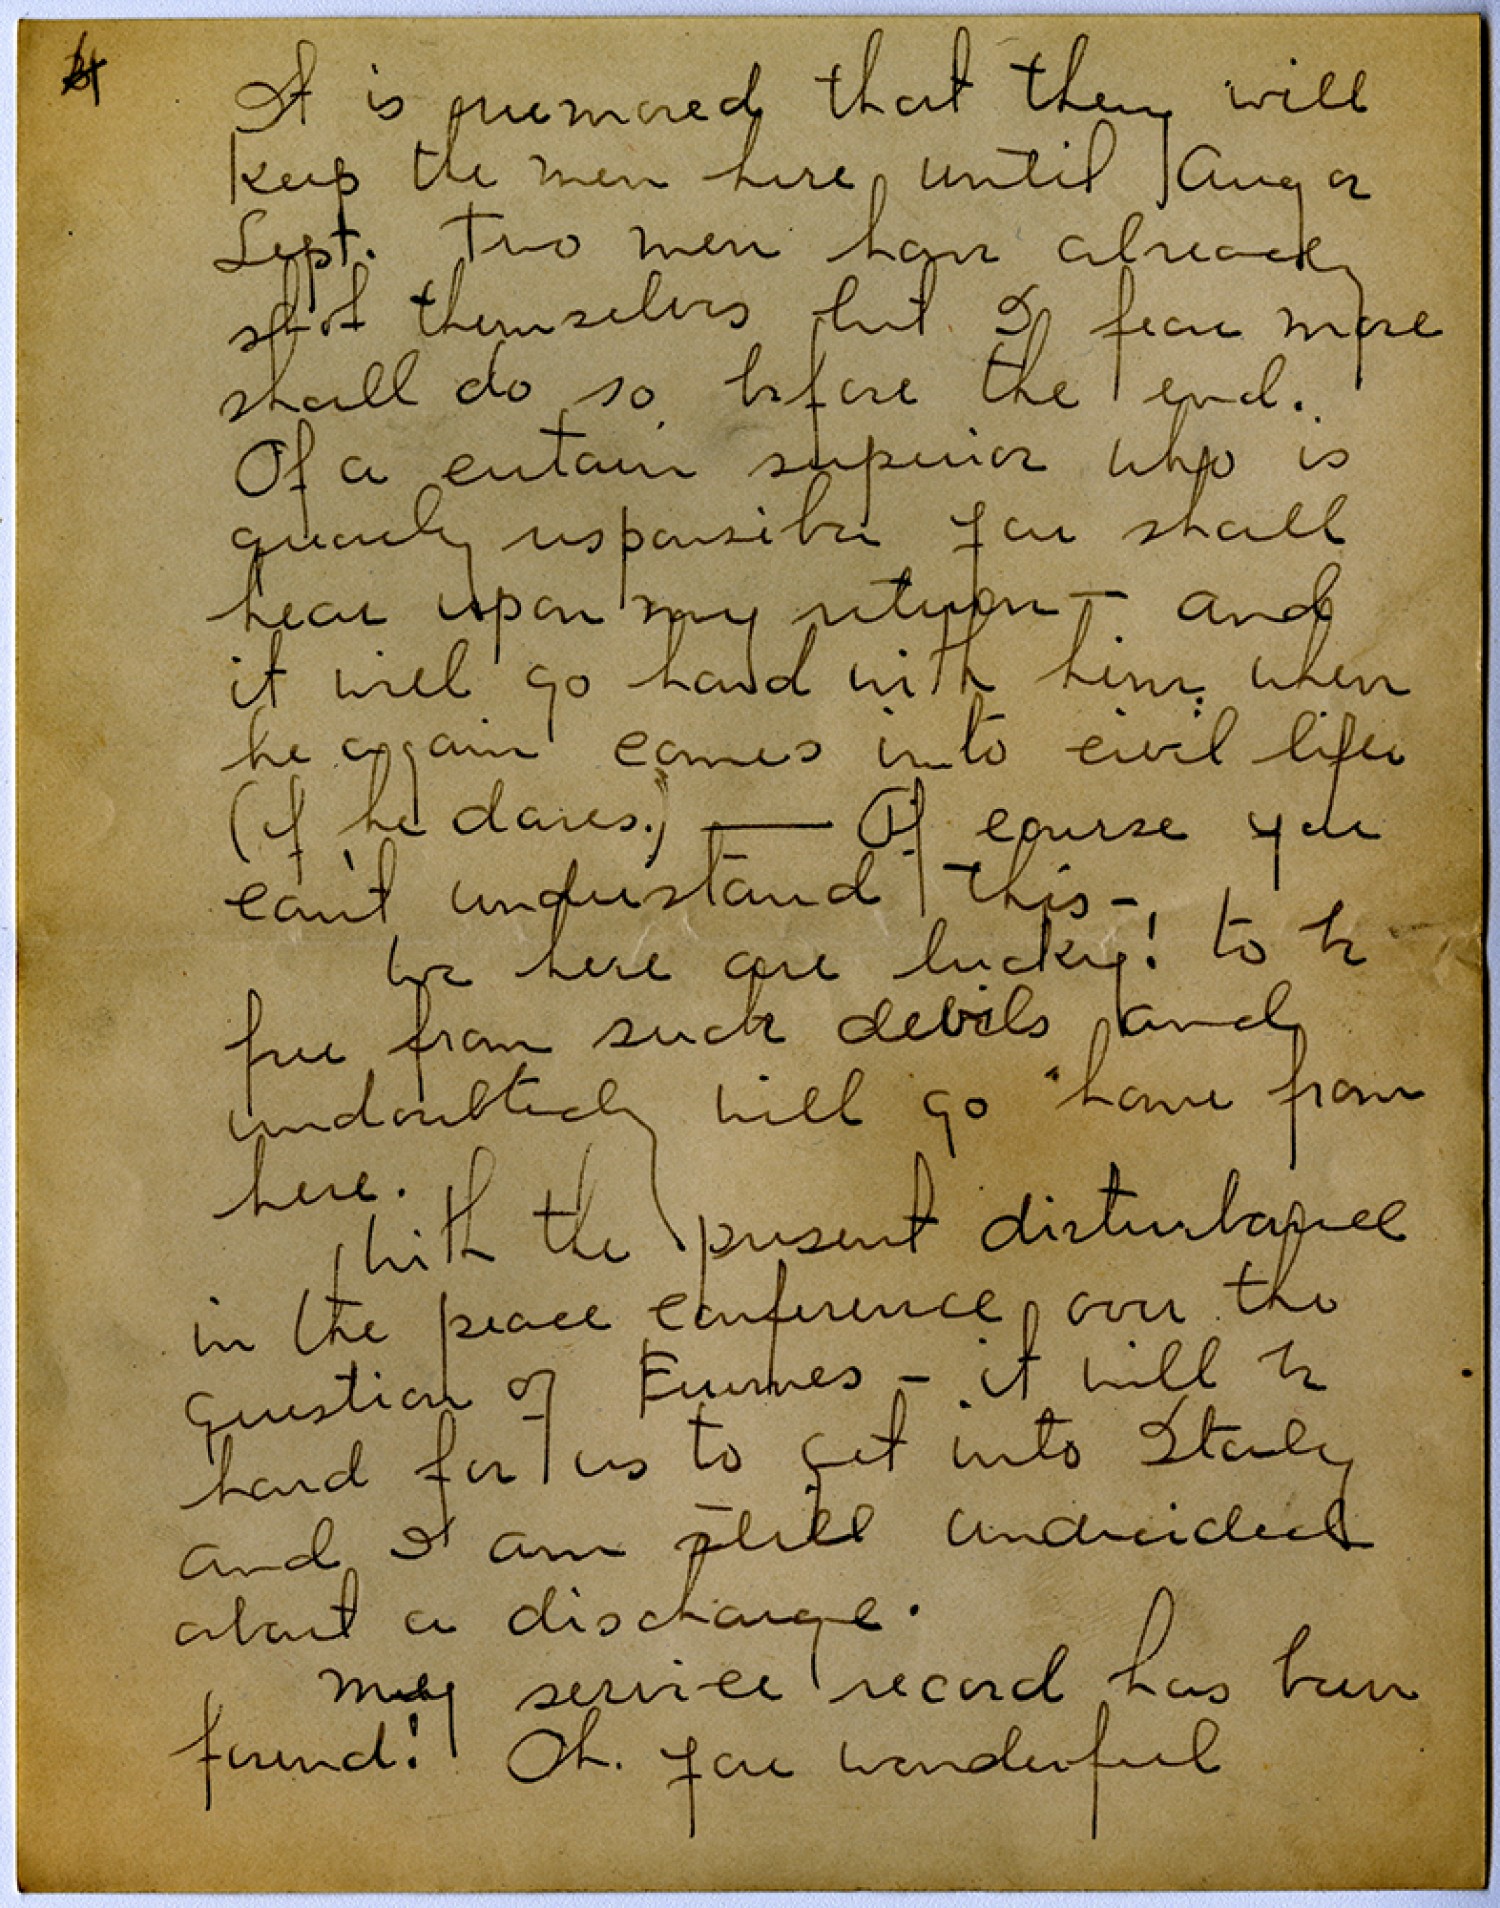 4
It is rumored that they will
keep the men here until Aug or
Sept. Two men have already
shot themselves but I fear more
shall do so before the end.
Of a certain superior who is
gravely responsible you shall
hear upon my return — and
it will go hard with him when
he again comes into civil life
(if he dares.) — Of course you
can't understand this —
We here are lucky! to be
free from such devils and
undoubtedly will go home from
here.
With the present disturbance
in the peace conference over the
question of Fiumes — it will be
hard for us to get into Italy
and I am still undecided
about a discharge.
My service record has been
found! Oh. you wonderful